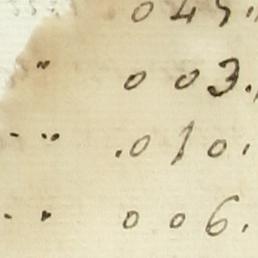 04
" 003.
- " .010.
- . 006.